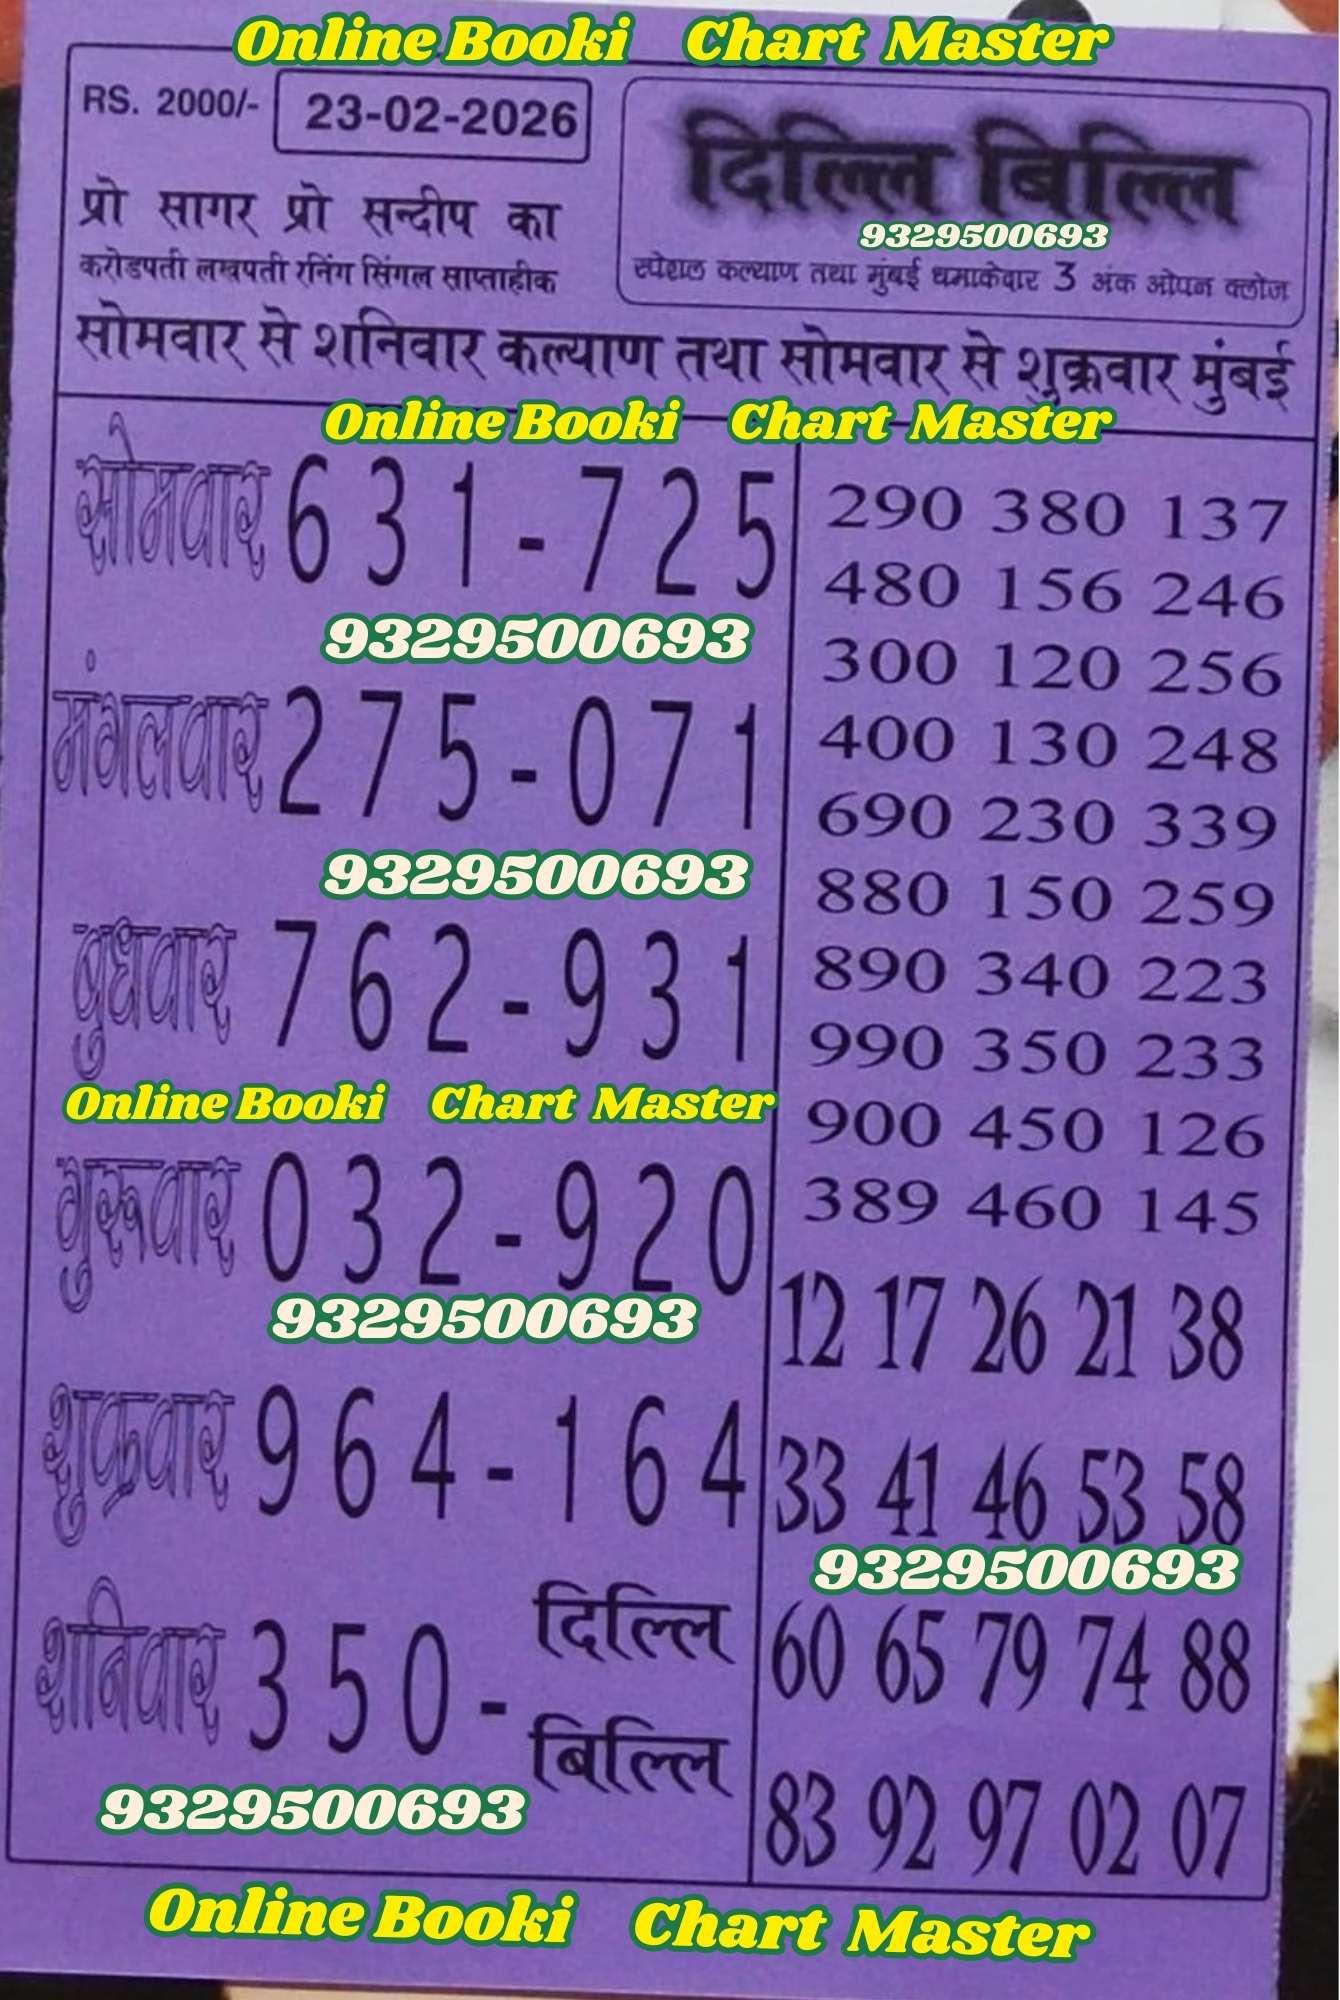 Online Booki Chart Master
RS. 2000/- 23-02-2026
दिल्लि बिल्लि
9329500693
प्रो सागर प्रो सन्दीप का
करोडपती लखपती रनिंग सिंगल साप्ताहीक
स्पेशल कल्याण तथा मुंबई धमाकेदार 3 अंक ओपन क्लोज
सोमवार से शनिवार कल्याण तथा सोमवार से शुक्रवार मुंबई
Online Booki Chart Master
सोमवार 631-725
9329500693
मंगलवार 275-071
9329500693
बुधवार 762-931
Online Booki Chart Master
गुरूवार 032-920
9329500693
शुक्रवार 964-164
शनिवार 350- दिल्लि
बिल्लि
9329500693
290 380 137
480 156 246
300 120 256
400 130 248
690 230 339
880 150 259
890 340 223
990 350 233
900 450 126
389 460 145
12 17 26 21 38
33 41 46 53 58
9329500693
60 65 79 74 88
83 92 97 02 07
Online Booki Chart Master